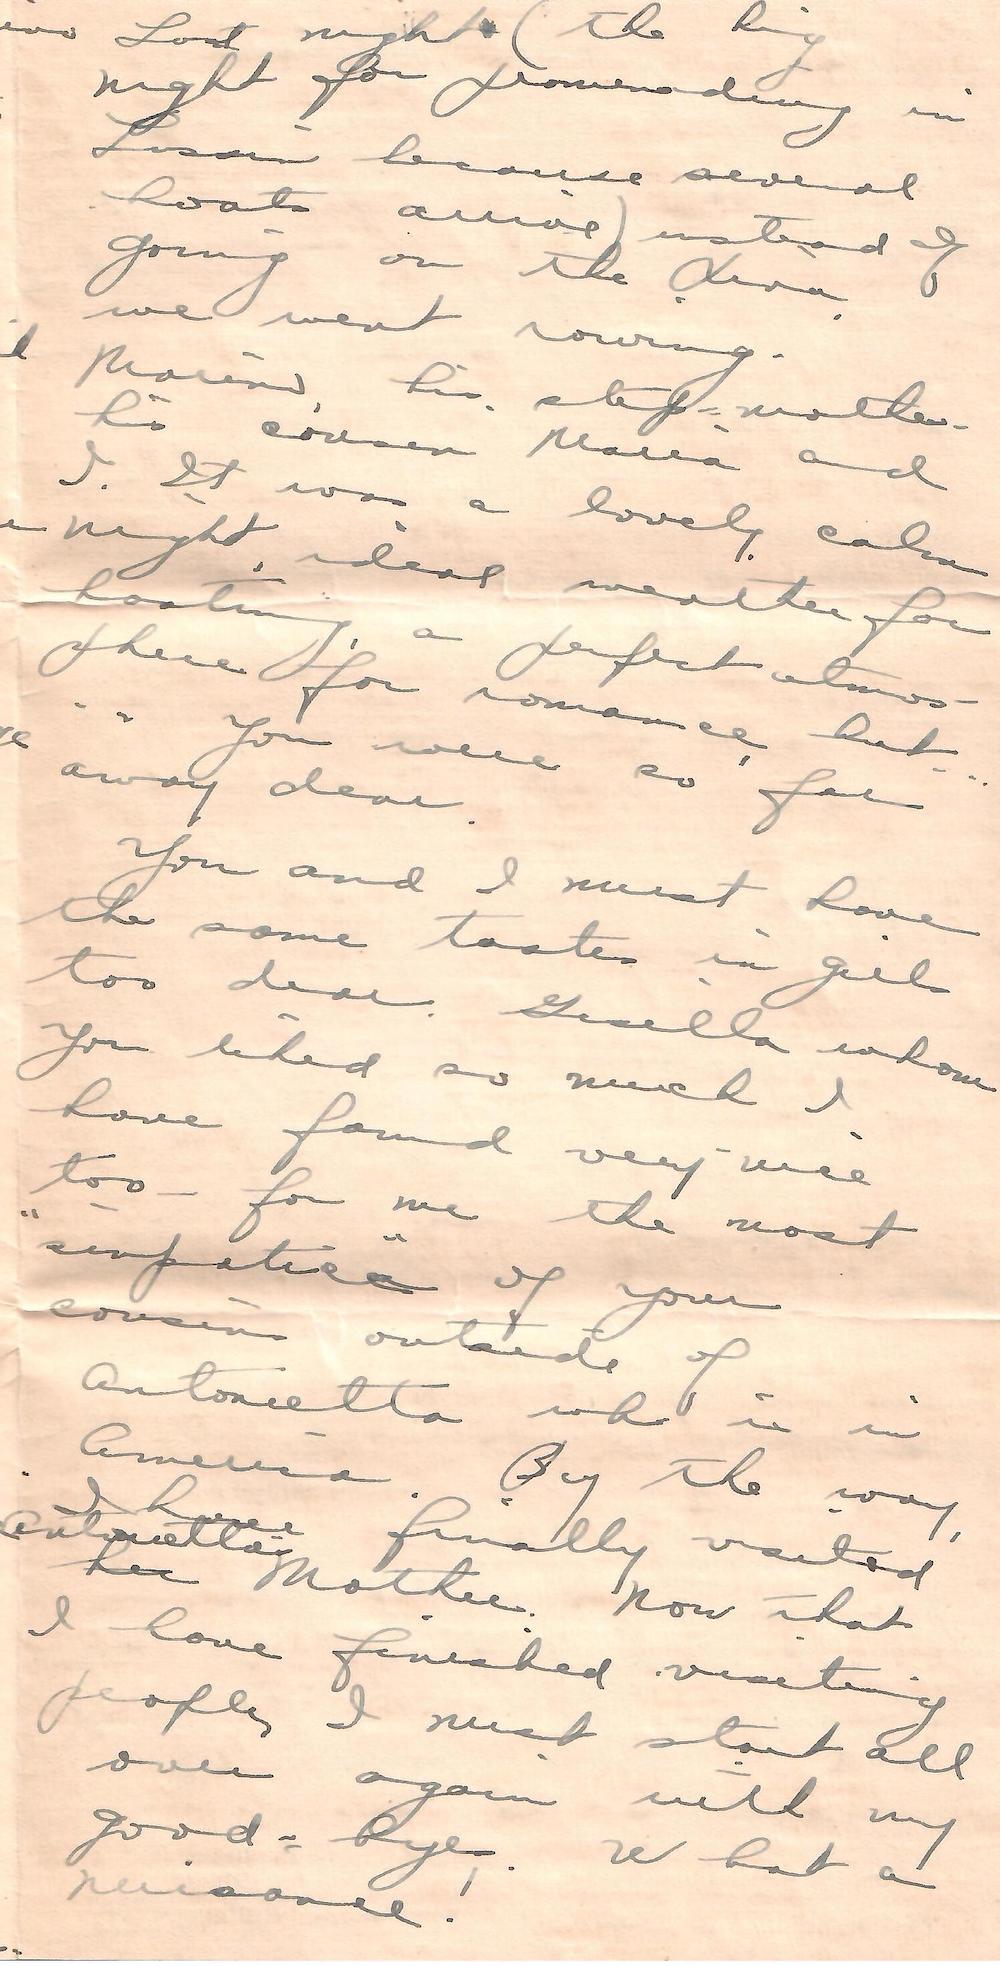 Last night (the big
night for promenading in
Lussin because several
boats arrive) instead of
going on the Riva,
we went rowing.
Marino, his step-mother
his cousin Maria and
I. It was a lovely, calm
night, ideal weather for
boating, a perfect atmos-
phere for romance, but...
.. you were so far
away dear.
You and I must have
the same tastes in girls
too dear. Gisella whom
you liked so much I
have found very nice
too - for me the most
"simpatica" of your
cousins outside of
Antonietta who is in
America. By the way,
I have finally visited
Antonietta's
her Mother. Now that
I have finished visiting
people, I must start all
over again with my
good-byes. What a
nuisance!